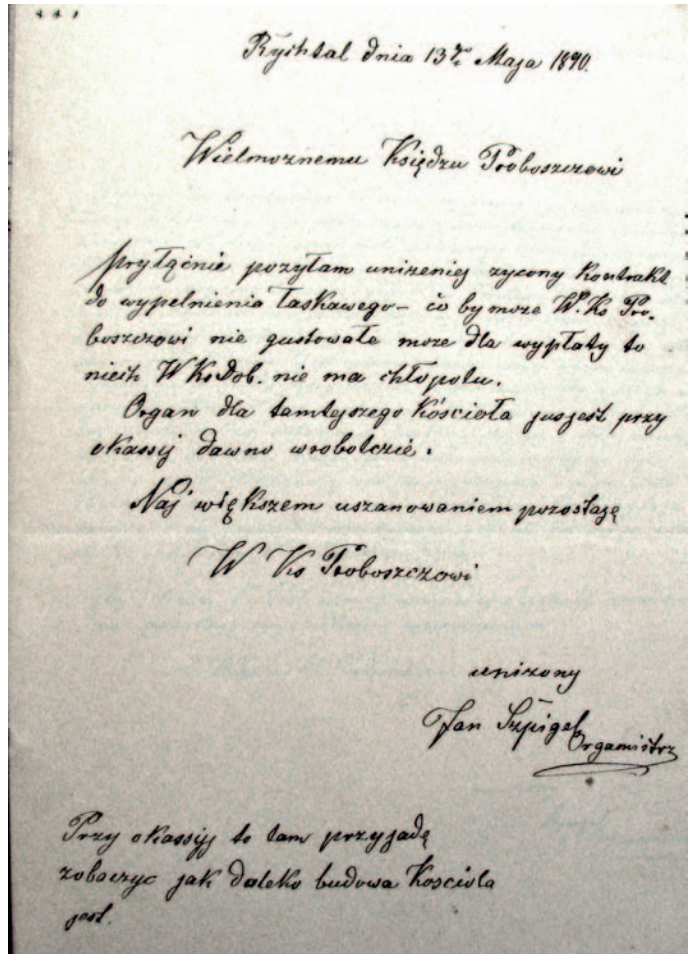 Rychtal dnia 13go Maja 1890.
Wielmoznemu Księdzu Proboszczowi
przyłącinie pozyłam unizeniej zycony kontrakt
do wypełnienia łaskawego – co by moze W. Ks Pro-
boszczowi nie gustowałe moze dla wypłaty to
niech W Ks Dob. nie ma chłopotu.
Organ dla tamtejszego Kościoła jusjest przy
okassij dawno wrobotczie.
Naj większem uszanowaniem pozostaję
W Ks Proboszczowi
unizony
Jan Szpigel
Orgamistrz
Przy okassijj to tam przyjadę
zobaczyc jak daleko budowa Kosciola
jest.